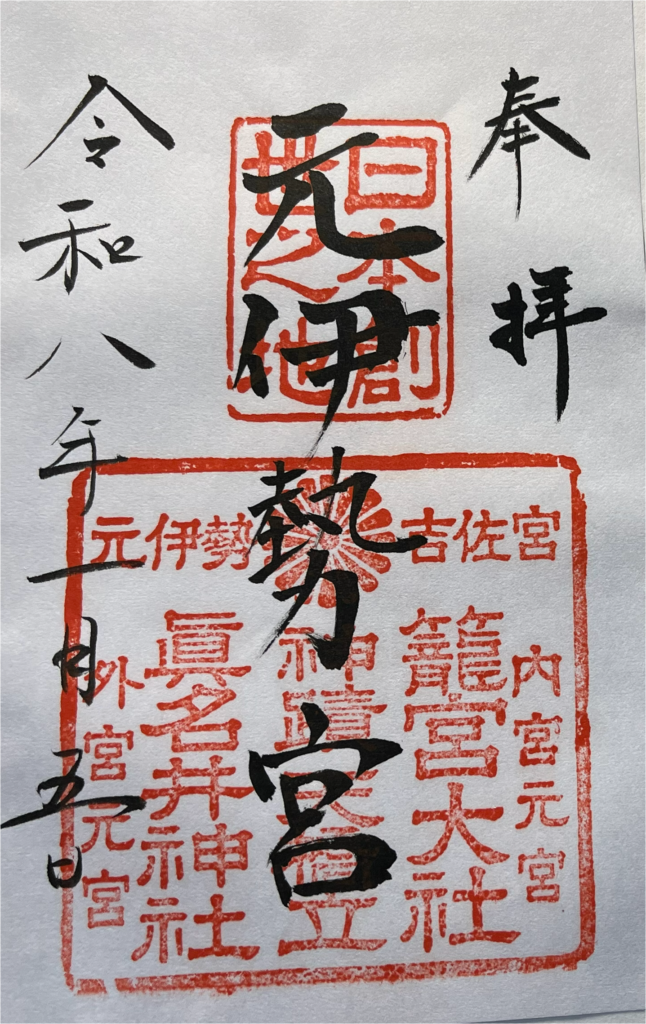 奉拝
元伊勢宮
令和八年一月五日
日本創
世之地
吉佐宮
元伊勢
内宮元宮
籠宮大社
神蹟天橋立
眞名井神社
外宮元宮